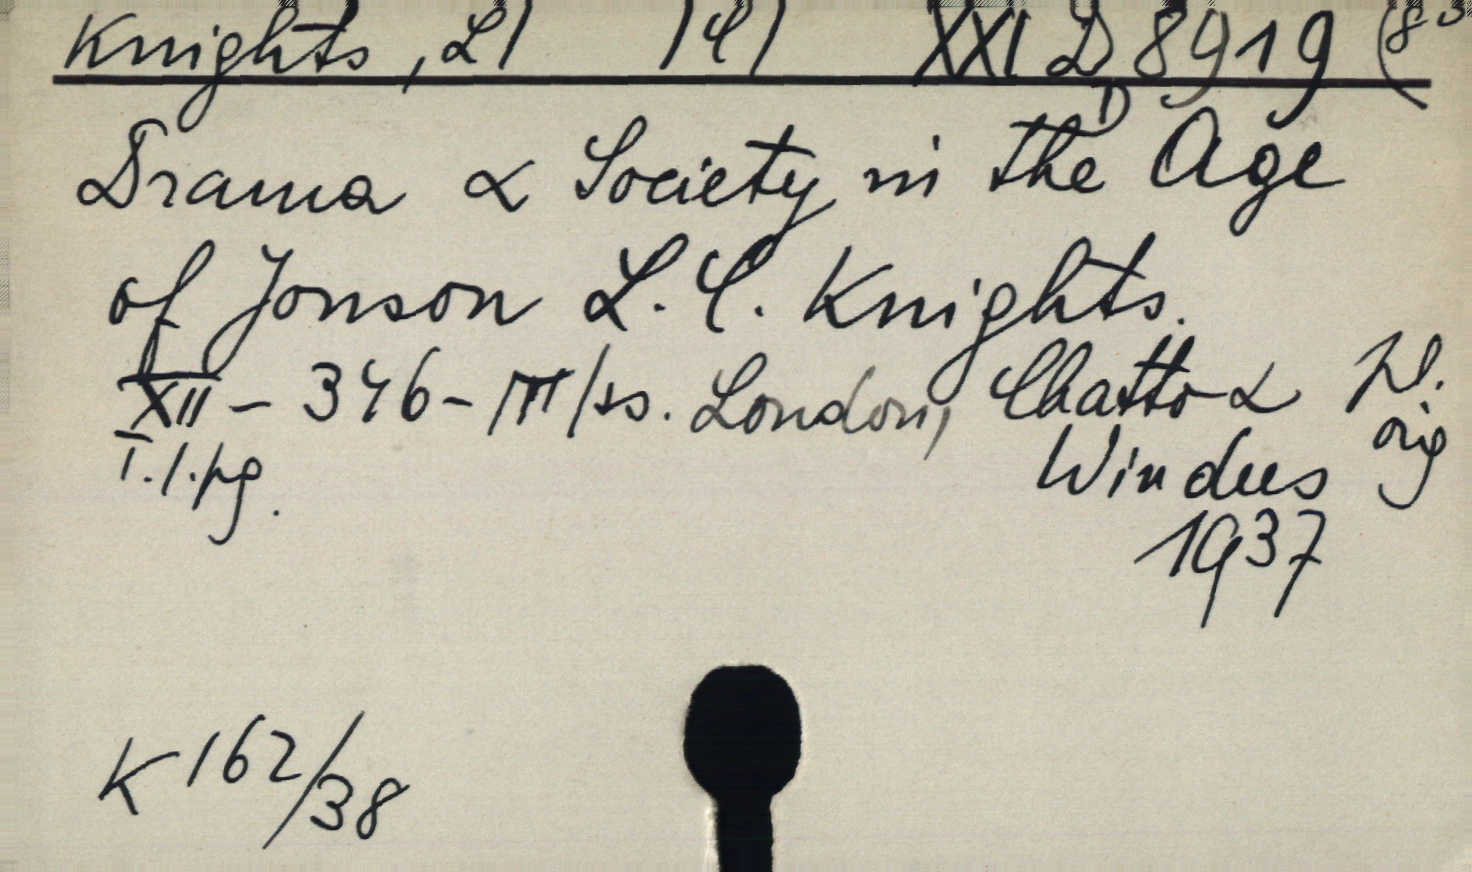 Knights, L) )C) XXI D 8919 (8-3
D
Drama & Society in the Age
of Jonson L. C. Knights.
XII - 346 - /ss. London, Chatto & W.
T. 1. pg. Windus orig
1937
K 162/38